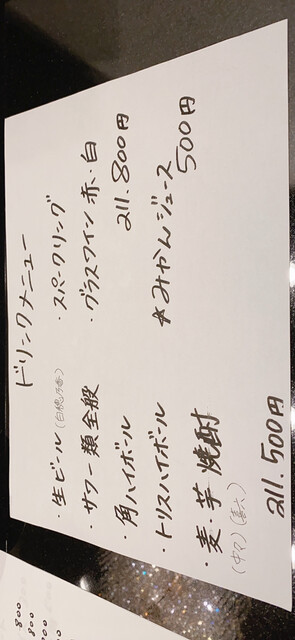 ドリンクメニュー
・生ビール
・サワー類全般
・角ハイボール
・トリスハイボール
・麦・芋 焼酎
all.500円
・スパークリング
・グラスワイン 赤・白
all.800円
*みかんジュース
500円
800
800